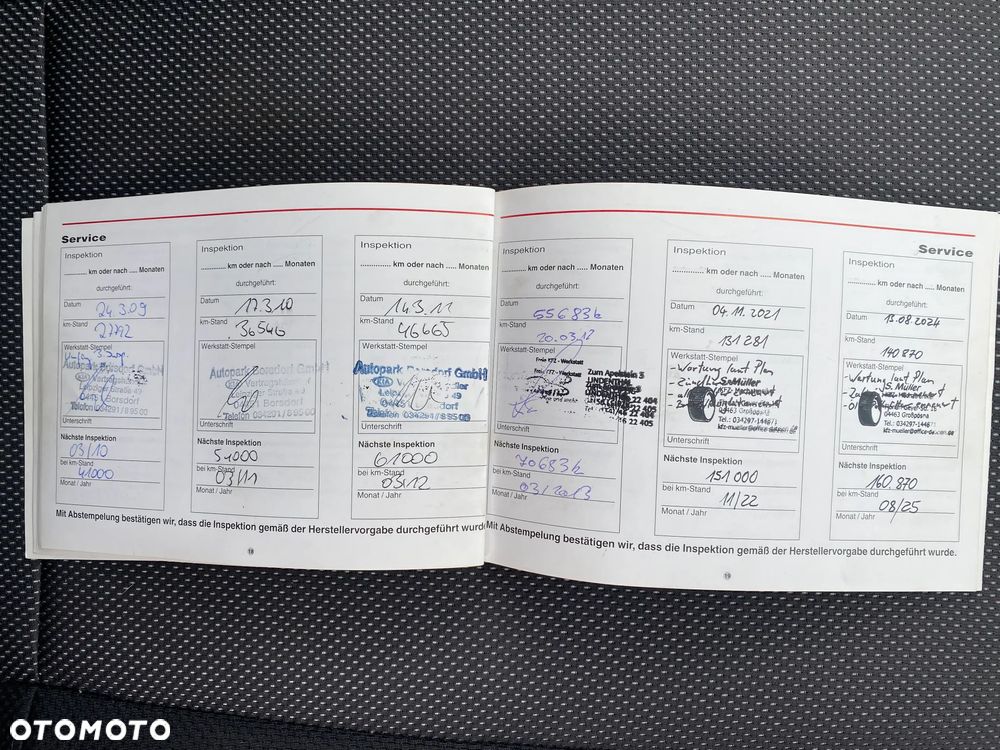 Service
Inspektion
............ km oder nach ..... Monaten
durchgeführt:
Datum
24.3.09
km-Stand
27792
Werkstatt-Stempel
Autopark Borsdorf GmbH
KIA Vertragshändler
Borsdorf
Telefon 034291/89500
Unterschrift
Nächste Inspektion
03/10
bei km-Stand
41000
Monat / Jahr
Inspektion
............ km oder nach ..... Monaten
durchgeführt:
Datum
17.3.10
km-Stand
36546
Werkstatt-Stempel
Autopark Borsdorf GmbH
KIA Vertragshändler
Borsdorf
Telefon 034291/89500
Unterschrift
Nächste Inspektion
51000
bei km-Stand
03/11
Monat / Jahr
Inspektion
............ km oder nach ..... Monaten
durchgeführt:
Datum
14.3.11
km-Stand
46665
Werkstatt-Stempel
Autopark Borsdorf GmbH
KIA
Borsdorf
Telefon 034291/89500
Unterschrift
Nächste Inspektion
61000
bei km-Stand
03/12
Monat / Jahr
Mit Abstempelung bestätigen wir, dass die Inspektion gemäß der Herstellervorgabe durchgeführt
18
Service
Inspektion
............ km oder nach ..... Monaten
durchgeführt:
Datum
55683k
km-Stand
20.03.12
Werkstatt-Stempel
Freie KFZ - Werkstatt
Zum Apelstein 3
LINDENTHAL
Unterschrift
Nächste Inspektion
70683k
bei km-Stand
03/2013
Monat / Jahr
Inspektion
............ km oder nach ..... Monaten
durchgeführt:
Datum
04.11.2021
km-Stand
131281
Werkstatt-Stempel
- Wartung laut Plan
J.S. Müller
04463 Großpösna
Tel.: 034297-144671
Unterschrift
Nächste Inspektion
151000
bei km-Stand
11/22
Monat / Jahr
Inspektion
............ km oder nach ..... Monaten
durchgeführt:
Datum
13.08.2024
km-Stand
140870
Werkstatt-Stempel
- Wartung laut Plan
J.S. Müller
04463 Großpösna
Tel.: 034297-144671
Unterschrift
Nächste Inspektion
160.870
bei km-Stand
08/25
Monat / Jahr
Mit Abstempelung bestätigen wir, dass die Inspektion gemäß der Herstellervorgabe durchgeführt wurde.
19
OTOMOTO